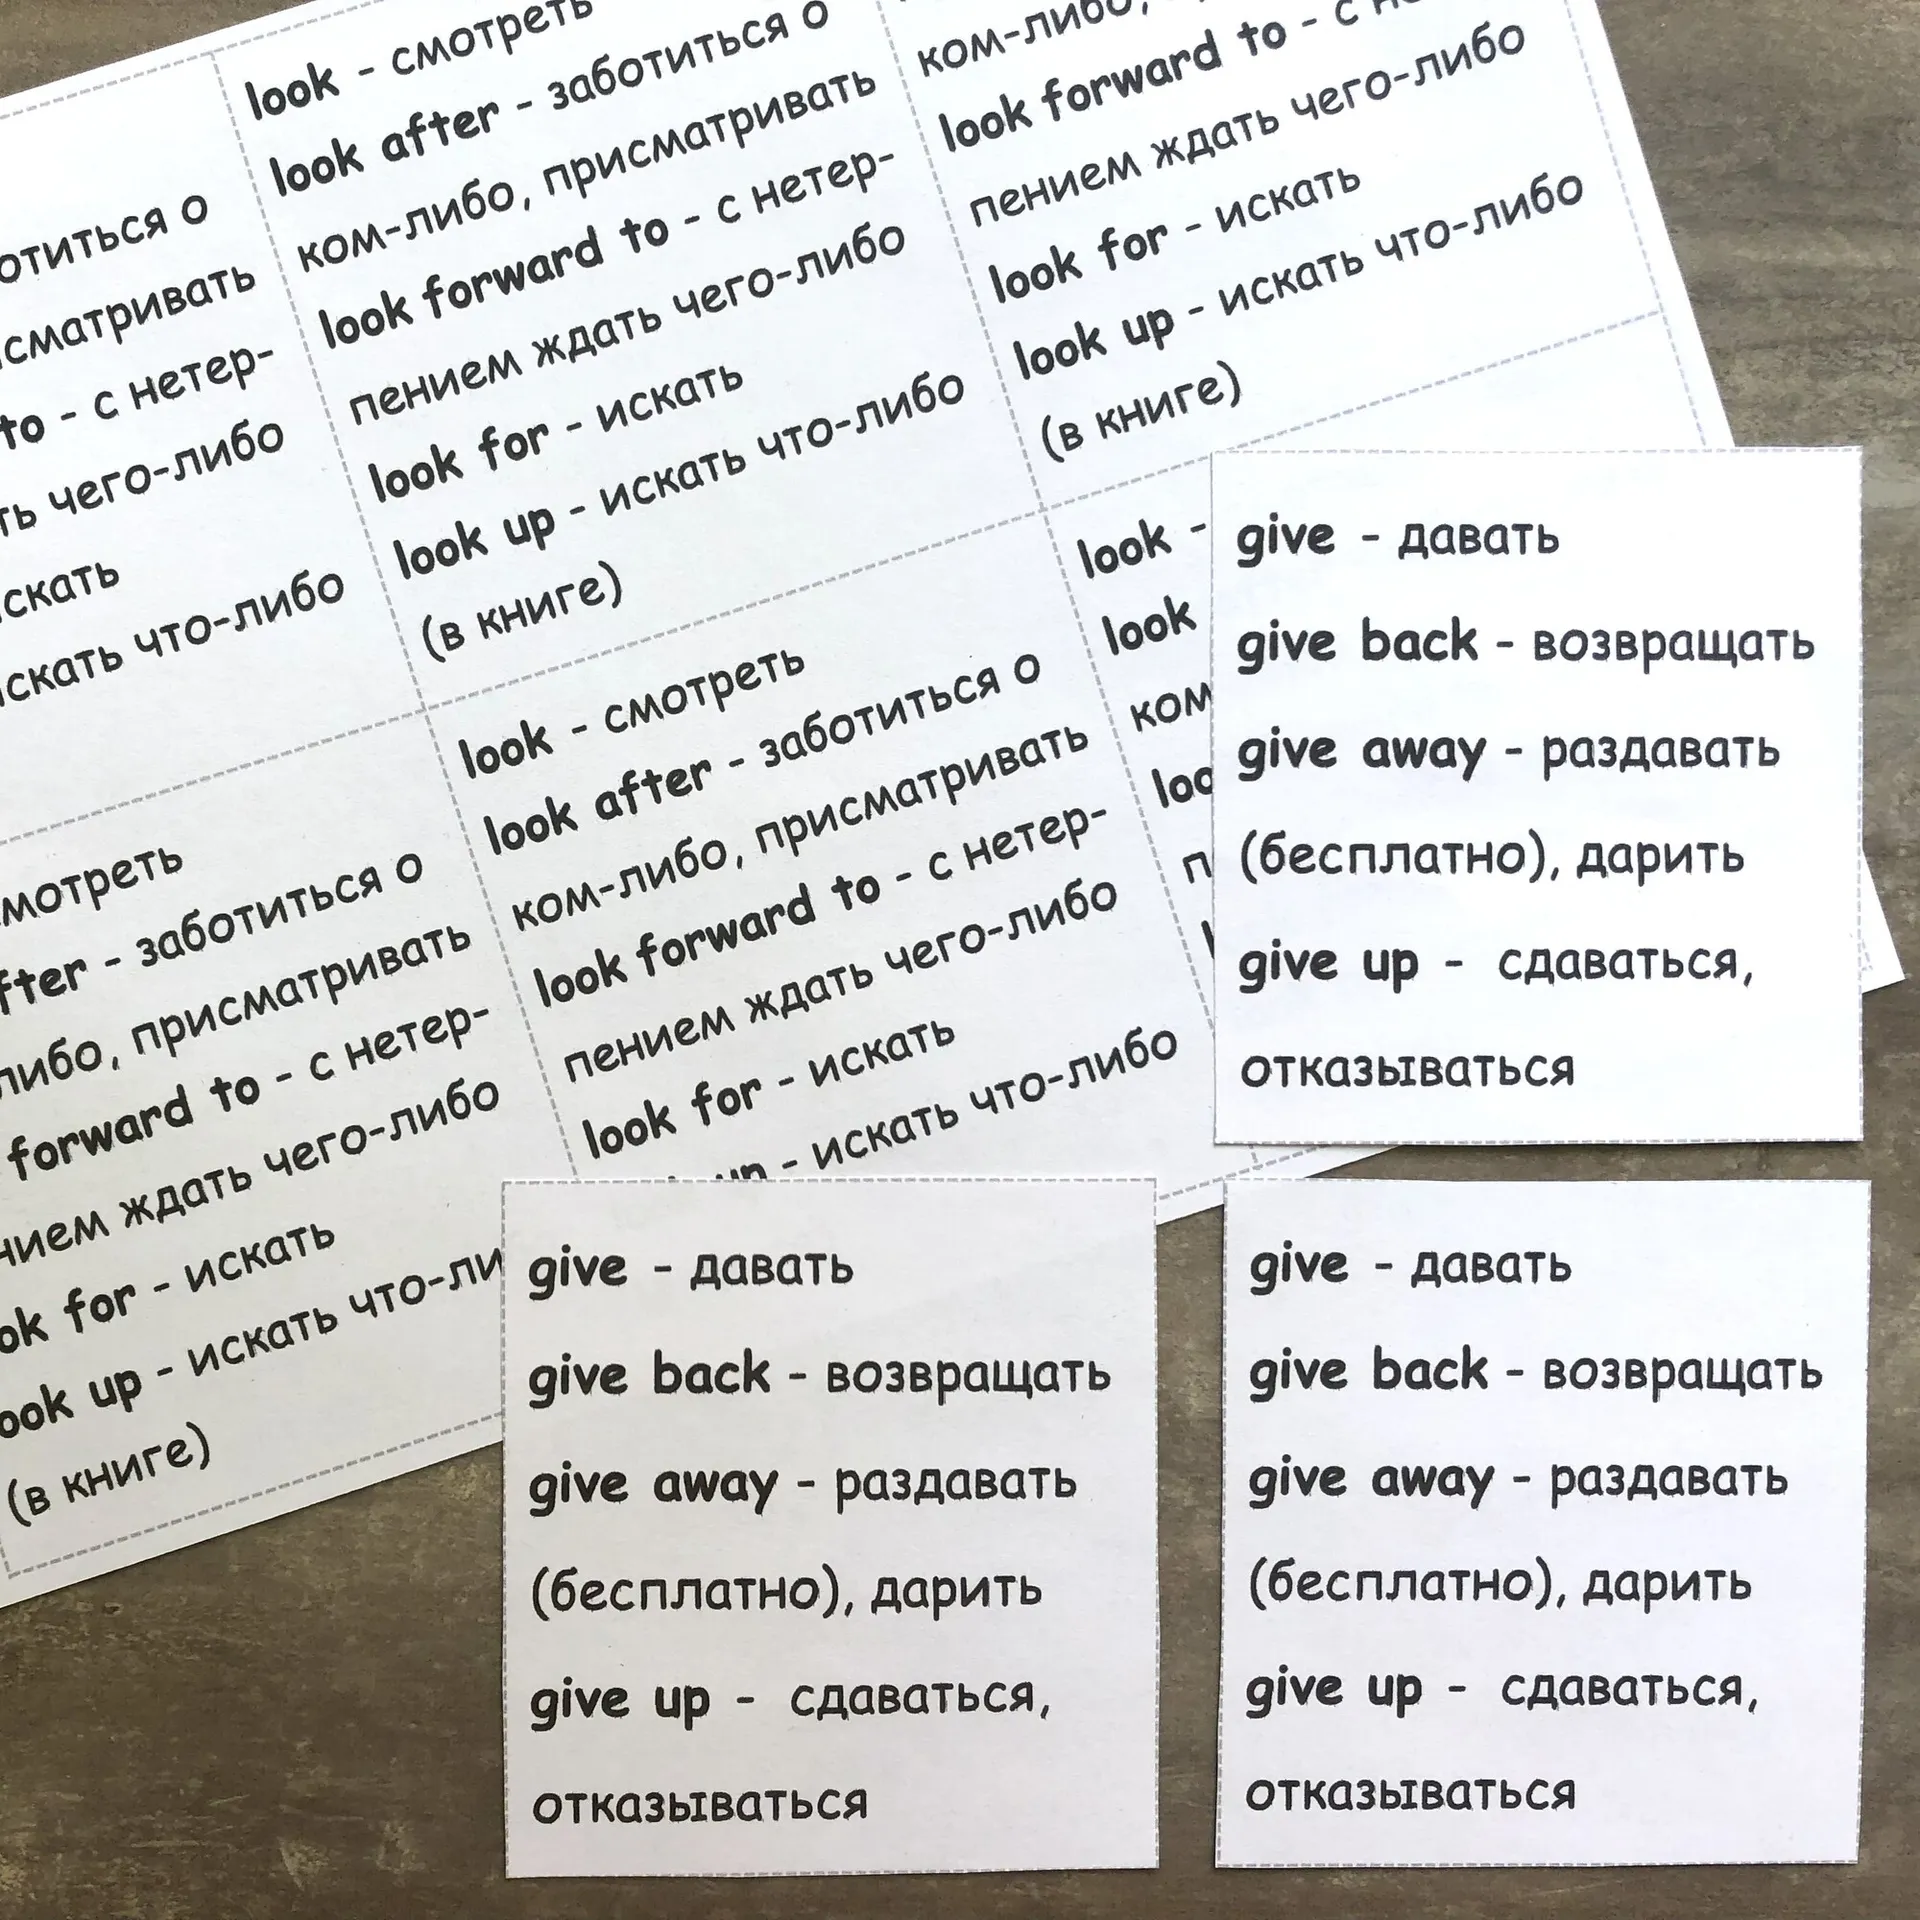 отиться о
сматривать
to - с нетер-
ть чего-либо
скать
скать что-либо
look - смотреть
look after - заботиться о
ком-либо, присматривать
look forward to - с нетер-
пением ждать чего-либо
look for - искать
look up - искать что-либо
(в книге)
ком-либо,
look forward to - с
пением ждать чего-либо
look for - искать
look up - искать что-либо
(в книге)
мотреть
fter - заботиться о
либо, присматривать
forward to - с нетер-
нием ждать чего-либо
ok for - искать
ook up - искать что-ли
(в книге)
look - смотреть
look after - заботиться о
ком-либо, присматривать
look forward to - с нетер-
пением ждать чего-либо
look for - искать
up - искать что-либо
look -
look
ком
loo
п
give - давать
give back - возвращать
give away - раздавать
(бесплатно), дарить
give up - сдаваться,
отказываться
give - давать
give back - возвращать
give away - раздавать
(бесплатно), дарить
give up - сдаваться,
отказываться
give - давать
give back - возвращать
give away - раздавать
(бесплатно), дарить
give up - сдаваться,
отказываться